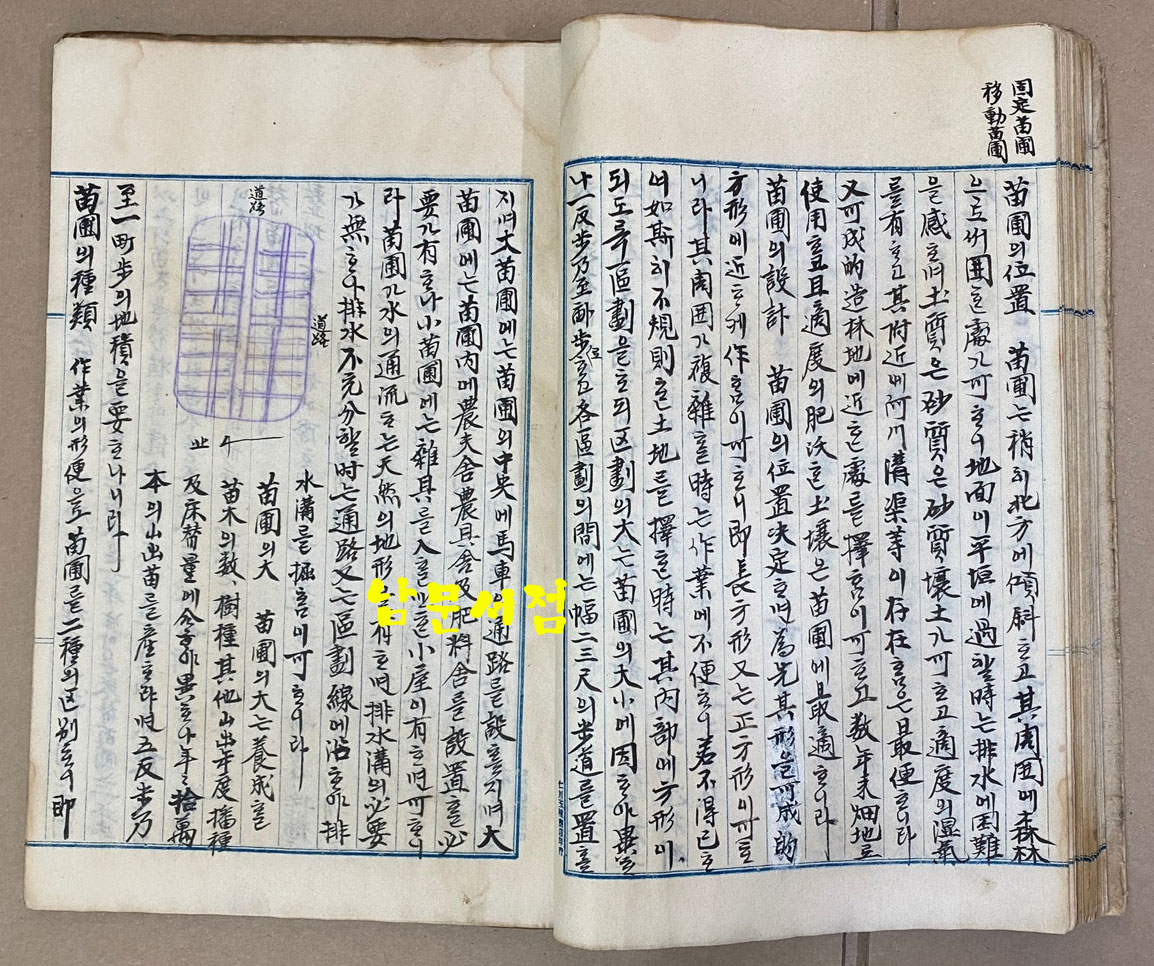 固定苗圃
移動苗圃
苗圃의位置 苗圃는稍히北方에傾斜ᄒᆞ고其周囲에森林
으로써囲ᄒᆞᆫ處가可ᄒᆞ니地面이平坦에過ᄒᆞᆯ時는排水에困難
을感ᄒᆞ며土質은砂質은砂質壤土가可ᄒᆞ고適度의湿氣
를有ᄒᆞ고其附近에河川溝渠等이存在ᄒᆞᆷ은最便ᄒᆞ니라
又可成的造林地에近ᄒᆞᆫ處를擇ᄒᆞᆷ이可ᄒᆞ고数年来畑地로
使用ᄒᆞ고且適度의肥沃ᄒᆞᆫ土壤은苗圃에最適ᄒᆞ니라
苗圃의設計 苗圃의位置決定ᄒᆞ면為先其形은可成的
方形에近ᄒᆞ게作ᄒᆞᆷ이可ᄒᆞ니即長方形又는正方形이可ᄒᆞ
니라其周囲가複雜ᄒᆞᆯ時는作業에不便ᄒᆞ니若不得已ᄒᆞ
여如斯히不規則ᄒᆞᆫ土地를擇ᄒᆞᆫ時는其内部에方形이
되도록區劃을ᄒᆞ되区劃의大는苗圃의大小에因ᄒᆞ야異ᄒᆞ
나一反步乃至 步位ᄒᆞ고各區劃의間에는幅二三尺의步道를置ᄒᆞ
지며大苗圃에는苗圃의中央에馬車의通路를設ᄒᆞᆯ지며大
苗圃에는苗圃内에農夫舎農具舎及肥料舎를設置ᄒᆞᆯ必
要가有ᄒᆞ나小苗圃에는雜具를入ᄒᆞᆯ만ᄒᆞᆫ小屋이有ᄒᆞ면可ᄒᆞ니
라苗圃가水의通流ᄒᆞ는天然의地形을有ᄒᆞ면排水溝의必要
가無ᄒᆞ나排水不充分ᄒᆞᆯ時는通路又는區劃線에沿ᄒᆞ야排
水溝를掘ᄒᆞᆷ이可ᄒᆞ니라
道路
道路
北
苗圃의大 苗圃의大는養成ᄒᆞᆯ
苗木의数、樹種其他山出年度播種
及床替量에依ᄒᆞ야異ᄒᆞ나年々拾萬
本의山出苗를産ᄒᆞ랴면五反步乃
至一町步의地積을要ᄒᆞ나니라
苗圃의種類 作業의形便으로苗圃를二種의区別ᄒᆞ니即
남문서점